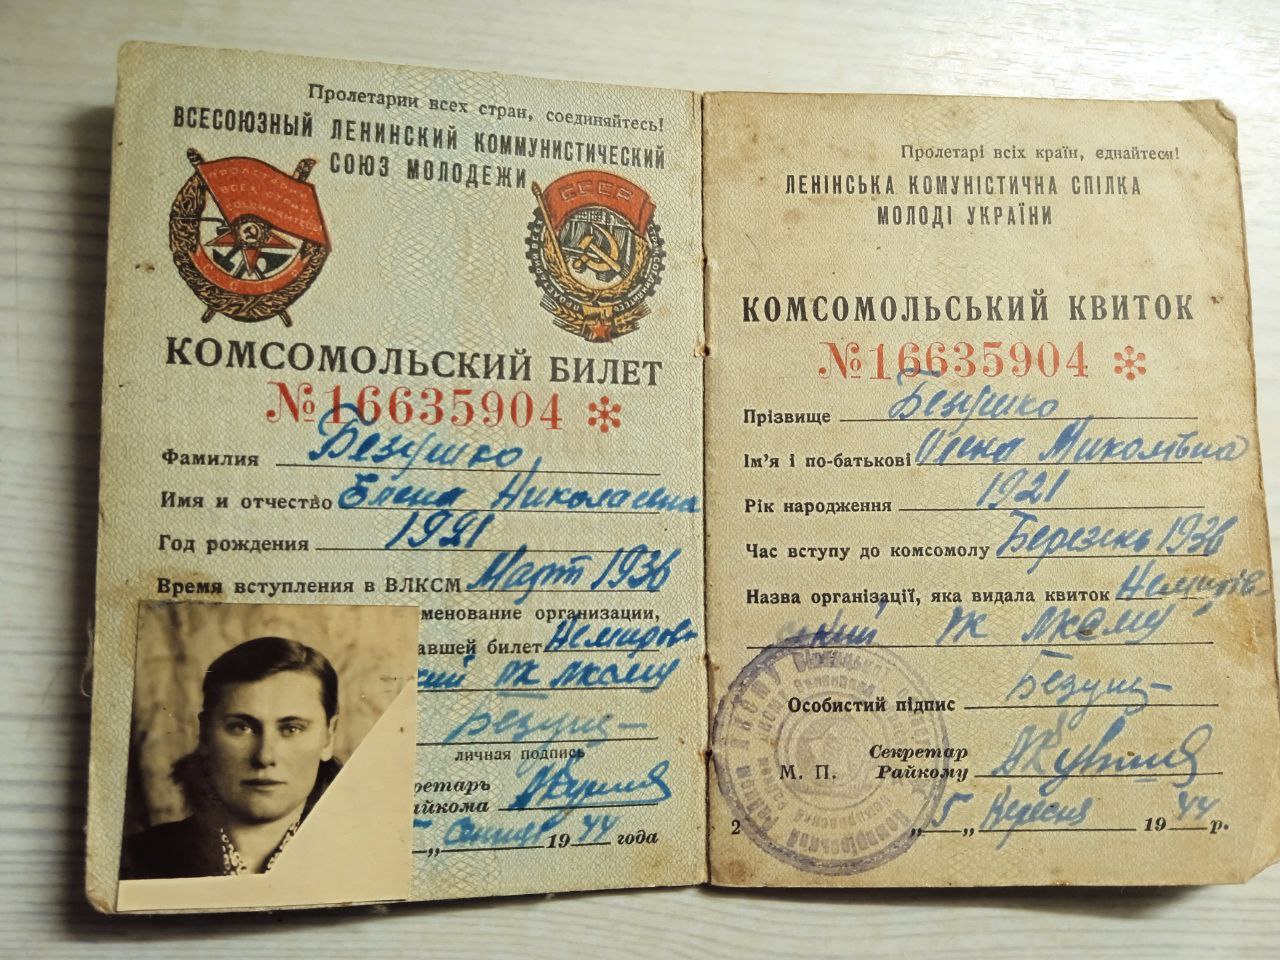 Пролетарии всех стран, соединяйтесь!
ВСЕСОЮЗНЫЙ ЛЕНИНСКИЙ КОММУНИСТИЧЕСКИЙ
СОЮЗ МОЛОДЕЖИ
ПРОЛЕТАРИИ
ВСЕХ СТРАН
СОЕДИНЯЙТЕСЬ
СССР
СССР
КОМСОМОЛЬСКИЙ БИЛЕТ
№16635904 *
Фамилия Безушко
Имя и отчество Елена Николаевна
Год рождения 1921
Время вступления в ВЛКСМ Март 1936
менование организации,
авшей билет Немиров-
ский РК лксму
Безуш-
личная подпись
ретарь
айкома
19 44 года
Пролетарі всіх країн, єднайтеся!
ЛЕНІНСЬКА КОМУНІСТИЧНА СПІЛКА
МОЛОДІ УКРАЇНИ
КОМСОМОЛЬСЬКИЙ КВИТОК
№16635904 *
Прізвище Безушко
Ім'я і по-батькові Олена Миколаївна
Рік народження 1921
Час вступу до комсомолу Березень 1936
Назва організації, яка видала квиток Немирів-
ський РК лксму
Особистий підпис Безуш-
Секретар
М. П. Райкому
2 „ 5 „ Вересня 19 44 р.